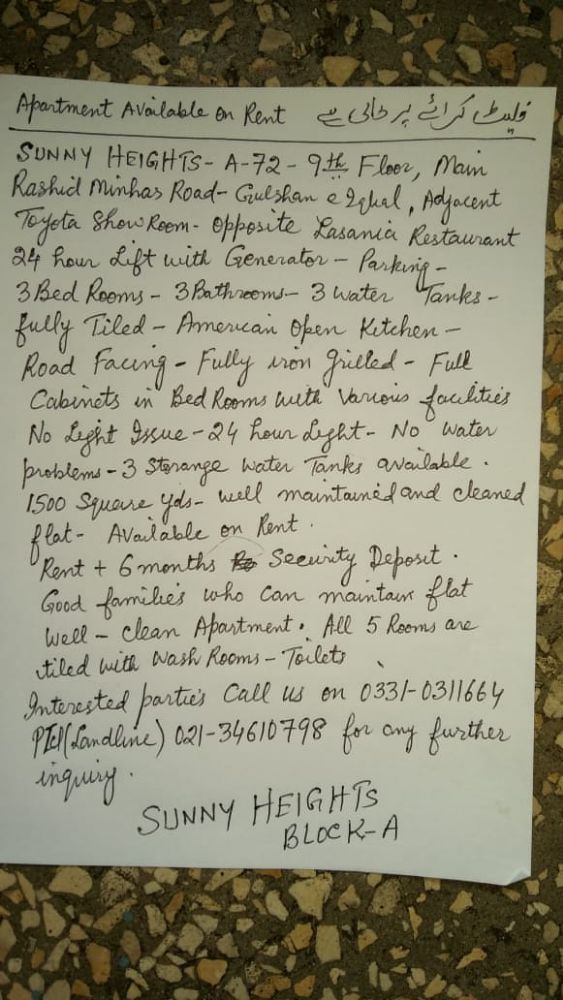 Apartment Available on Rent فلیٹ کرائے پر خالی ہے
SUNNY HEIGHTS- A-72 - 9th Floor, Main
Rashid Minhas Road- Gulshan e Iqbal, Adjacent
Toyota Show Room- opposite Lasania Restaurant
24 hour Lift with Generator - Parking -
3 Bed Rooms - 3 Bathrooms - 3 Water Tanks -
fully Tiled - American Open Kitchen -
Road Facing - Fully iron grilled - Full
Cabinets in Bed Rooms with Various facilities
No Light Issue - 24 hour Light - No Water
problems - 3 Storange Water Tanks available .
1500 Square yds - well maintained and cleaned
flat - Available on Rent .
Rent + 6 months Security Deposit .
Good families who can maintain flat
well - clean Apartment. All 5 Rooms are
tiled with Wash Rooms - Toilets
Interested parties Call us on 0331-0311664
PTCl (Landline) 021-34610798 for any further
inquiry .
SUNNY HEIGHTS
BLOCK-A